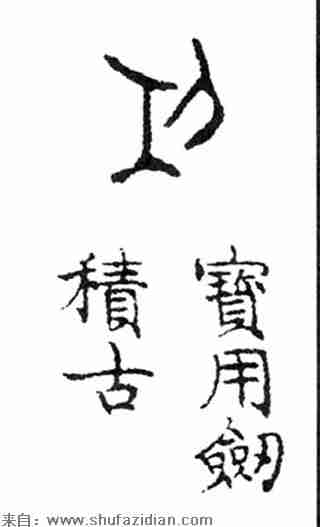 功
寶用劒
積古
来自：www.shufazidian.com